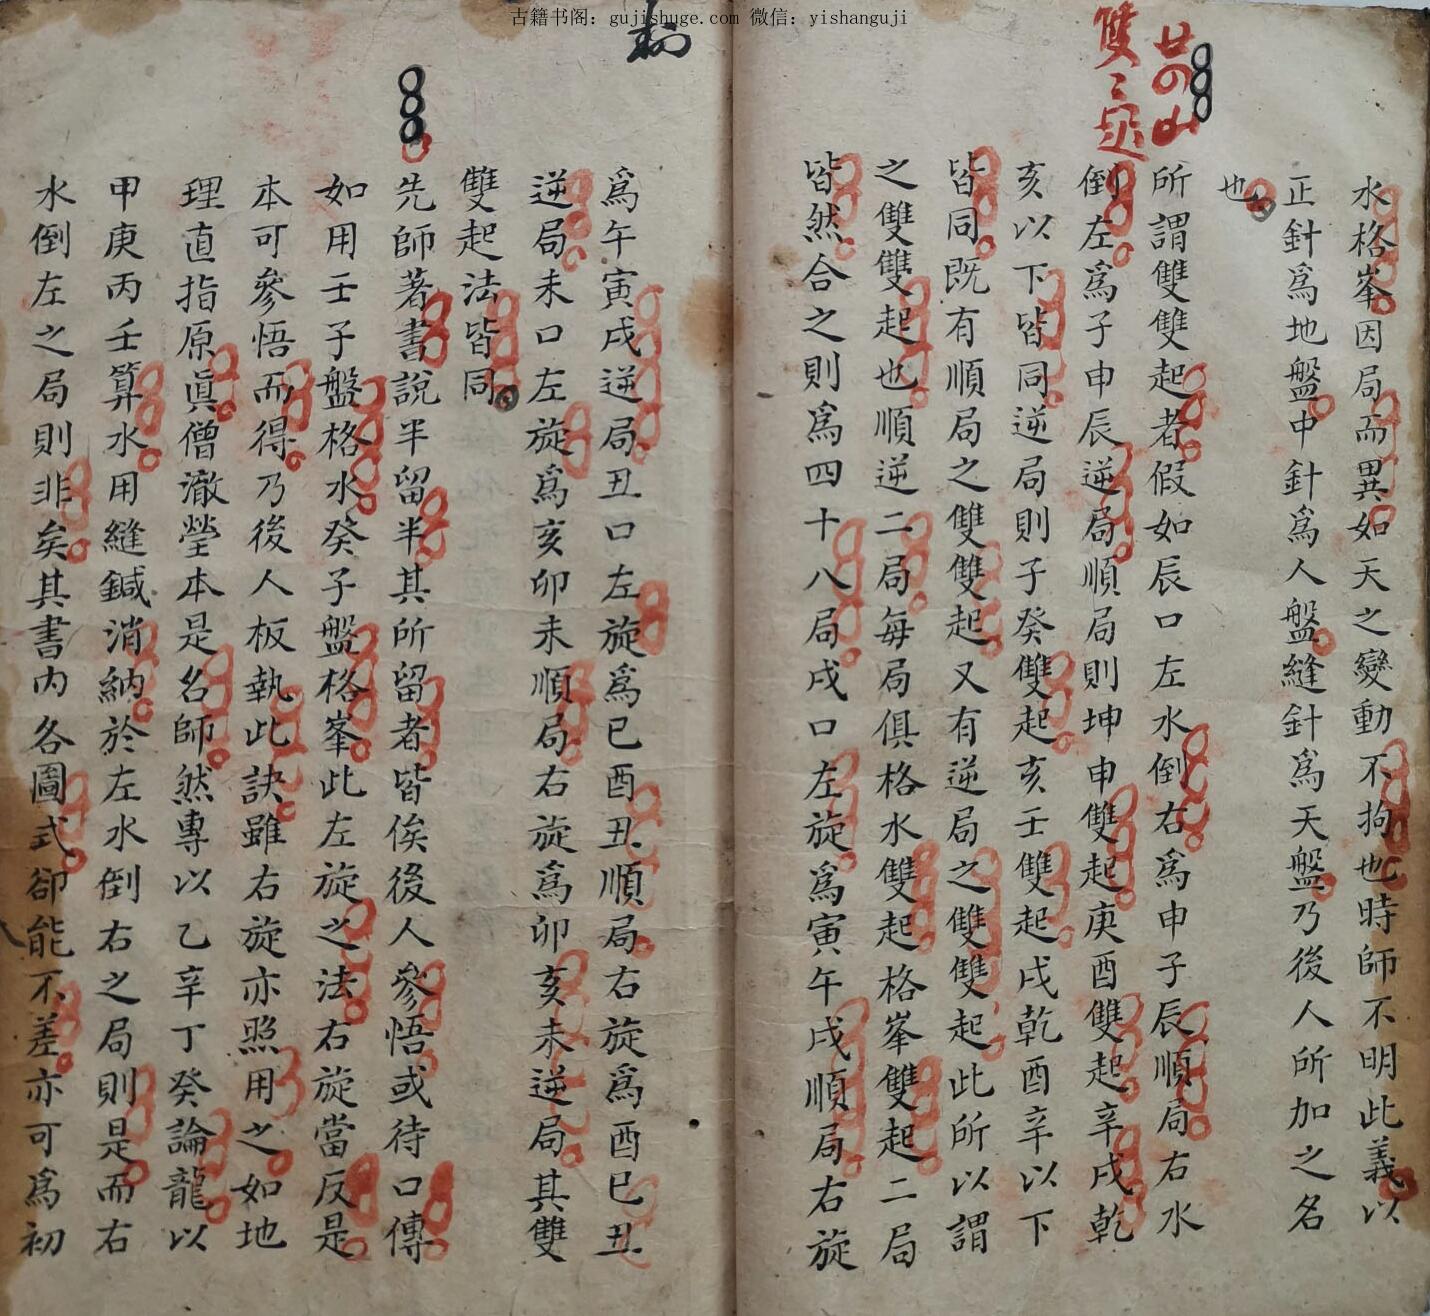 古籍书阁：gujishuge.com 微信：yishanguji
水格峯因局而異如天之變動不拘也時師不明此義以
正針爲地盤中針爲人盤縫針爲天盤乃後人所加之名
也
所謂雙雙起者假如辰口左水倒右爲申子辰順局右水
倒左爲子申辰逆局順局則坤申雙起庚酉雙起辛戌乾
亥以下皆同逆局則子癸雙起亥壬雙起戌乾酉辛以下
皆同既有順局之雙雙起又有逆局之雙雙起此所以謂
之雙雙起也順逆二局每局俱格水雙起格峯雙起二局
皆然合之則爲四十八局戌口左旋爲寅午戌順局右旋
爲午寅戌逆局丑口左旋爲巳酉丑順局右旋爲酉巳丑
逆局未口左旋爲亥卯未順局右旋爲卯亥未逆局其雙
雙起法皆同
先師著書說半留半其所留者皆俟後人參悟或待口傳
如用壬子盤格水癸子盤格峯此左旋之法右旋當反是
本可參悟而得乃後人板執此訣雖右旋亦照用之如地
理直指原眞僧澈瑩本是名師然專以乙辛丁癸論龍以
甲庚丙壬算水用縫鍼消納於左水倒右之局則是而右
水倒左之局則非矣其書内各圖式卻能不差亦可爲初